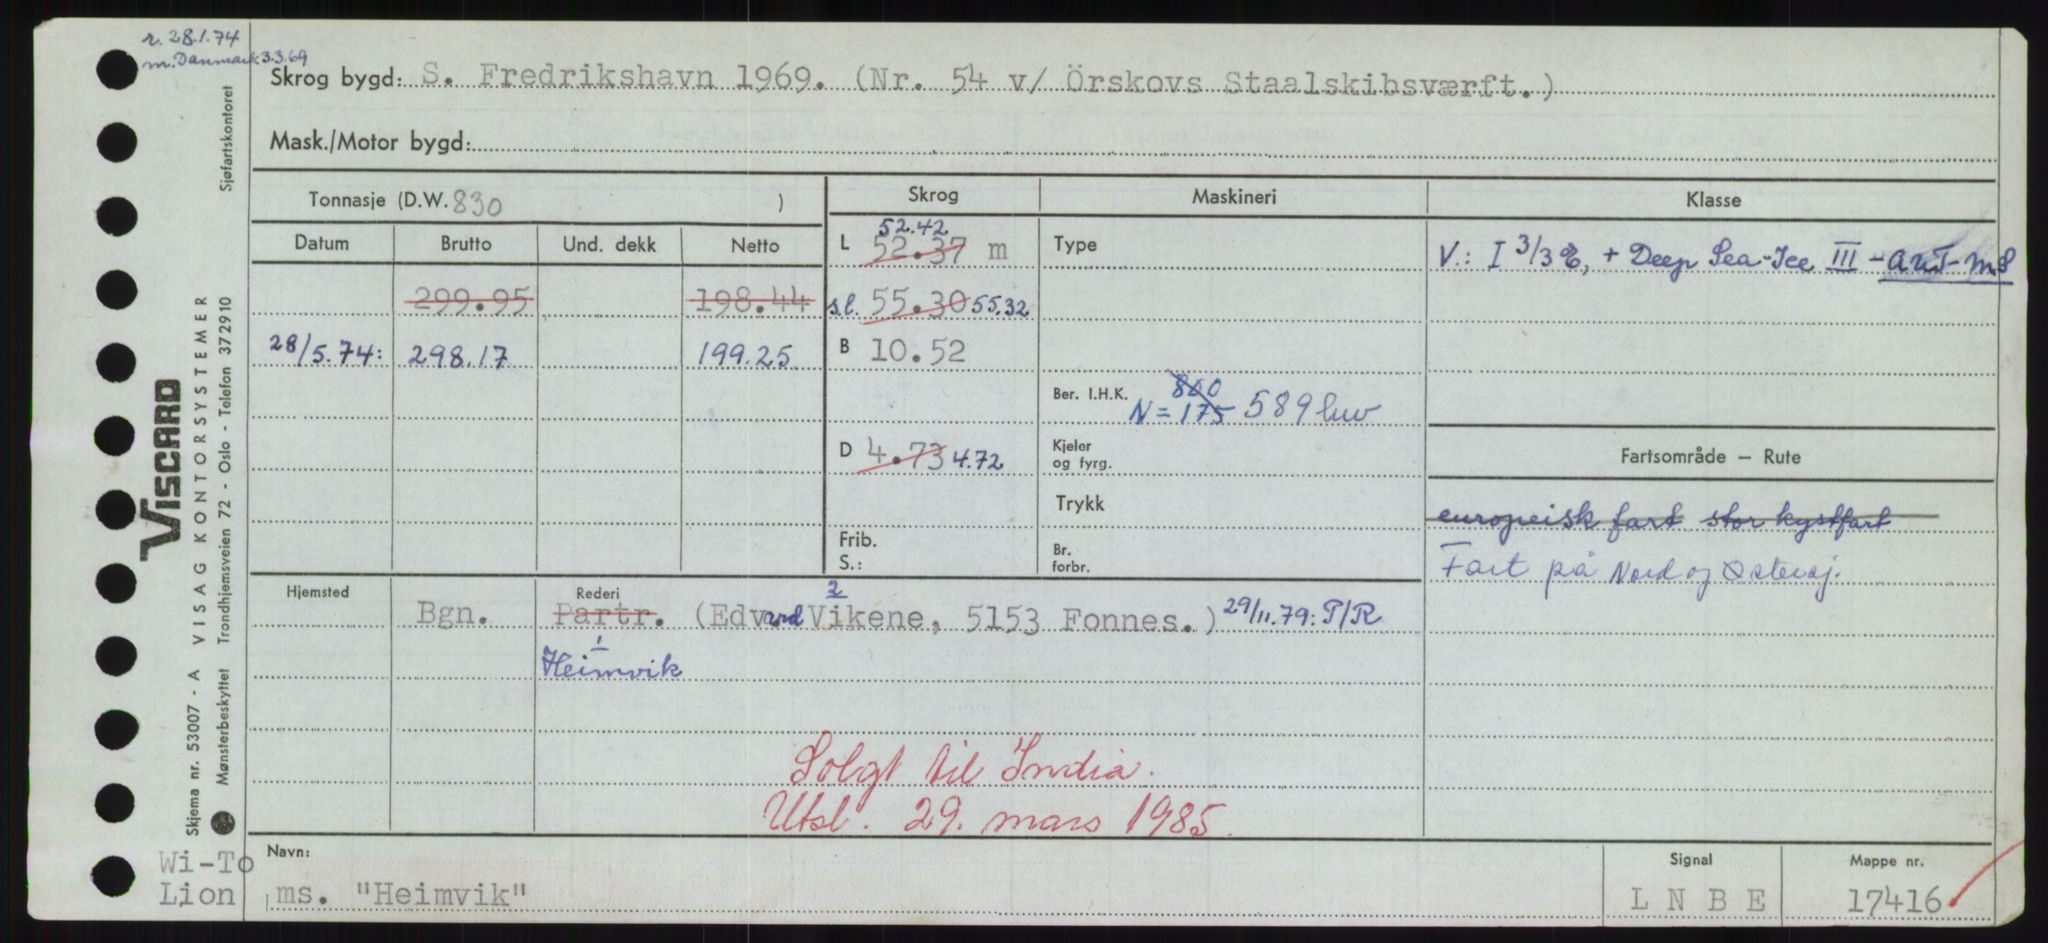 r. 28.1.74
m. Danmark 3.3.69
Skrog bygd: S. Fredrikshavn 1969. (Nr. 54 v/ Örskovs Staalskibsværft.)
Mask./Motor bygd:
Tonnasje (D.W. 830 )
Skrog
Maskineri
Klasse
Datum Brutto Und. dekk Netto
299.95 198.44
28/5.74: 298.17 199.25
52.42
L 52.37 m
s.l. 55.30 55.32
B 10.52
D 4.73 4.72
Frib.
S.:
Type
Ber. I.H.K. 800
N = 175 589 kw
Kjeler
og fyrg.
Trykk
Br.
forbr.
V.: I 3/3 %, + Deep Sea-Ice III - ANT-MS
Fartsområde – Rute
europeisk fart stor kystfart
Fart på Nord og Østersj.
Hjemsted
Rederi
2
Bgn. Partr. (Edvard Vikene, 5153 Fonnes.) 29/11.79: P/R
1
Heimvik
Solgt til India.
Utsl. 29. mars 1985.
Navn:
Signal
Mappe nr.
ms. "Heimvik"
L N B E
17416
Wi-To
Lion
VISCARD
Skjema nr. 53007 - A VISAG KONTORSYSTEMER
Mønsterbeskyttet Trondhjemsveien 72 - Oslo - Telefon 372910
Sjøfartskontoret